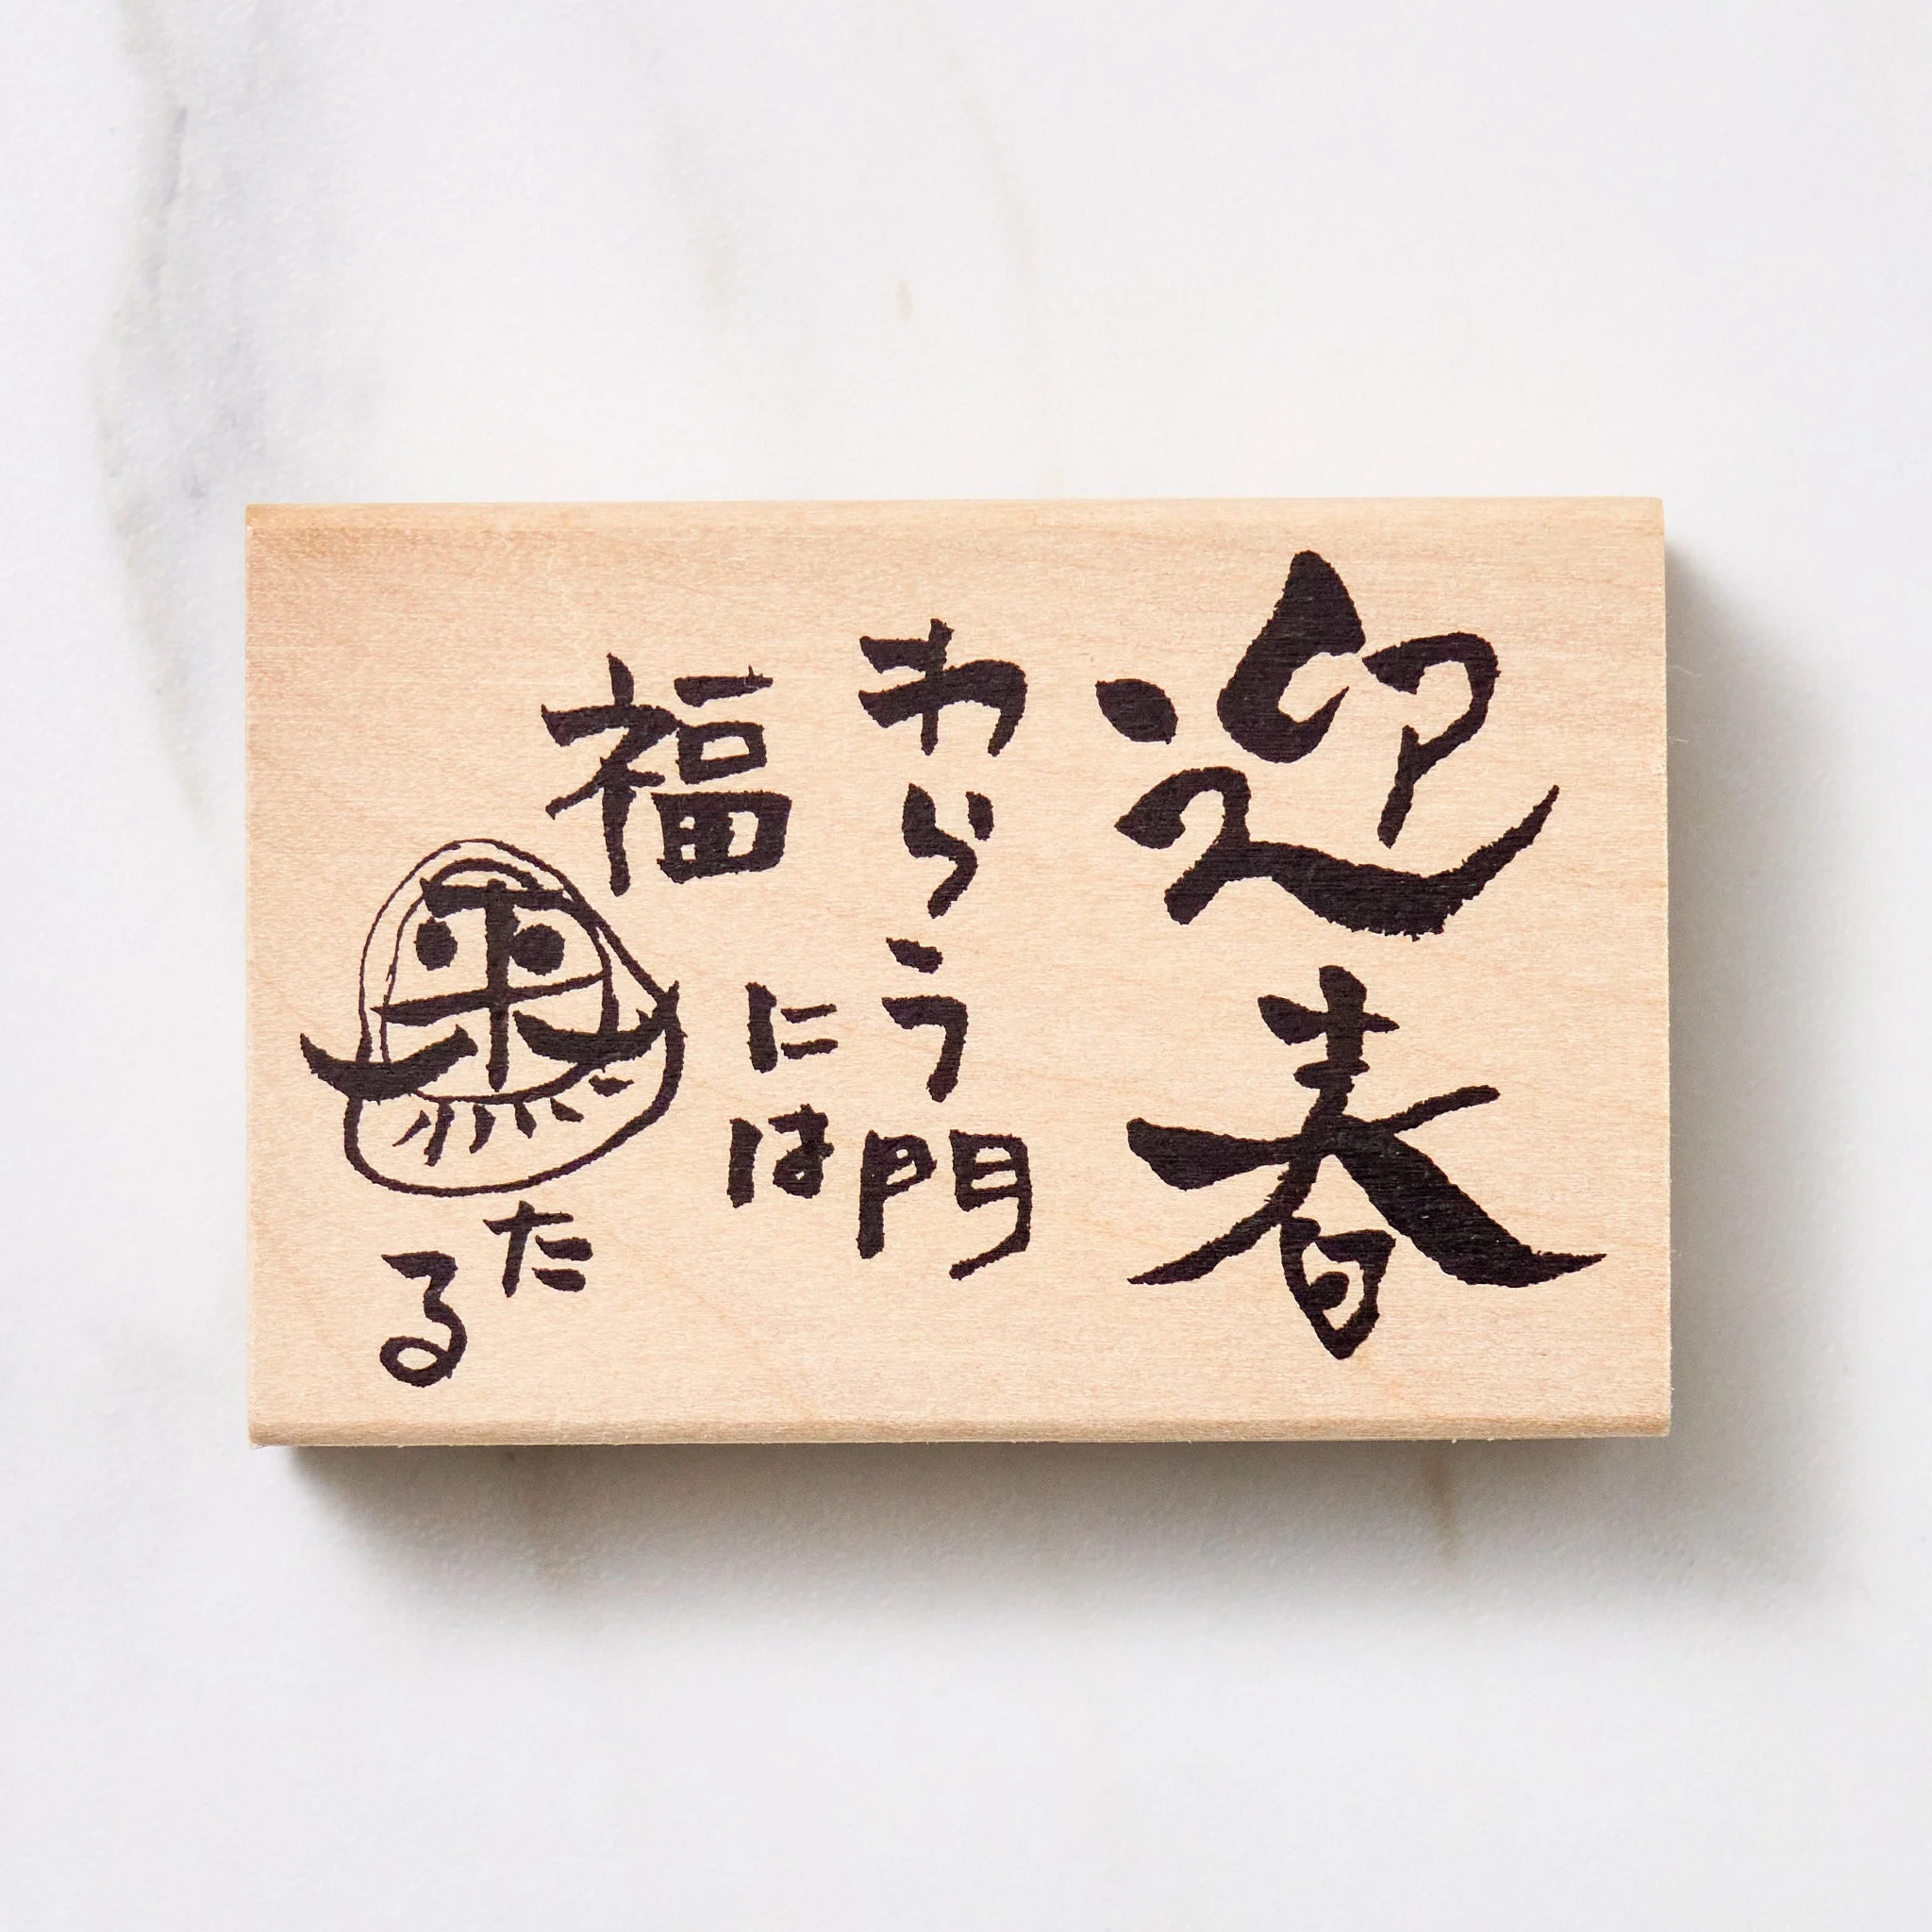 迎春
わらう門
には
福来たる